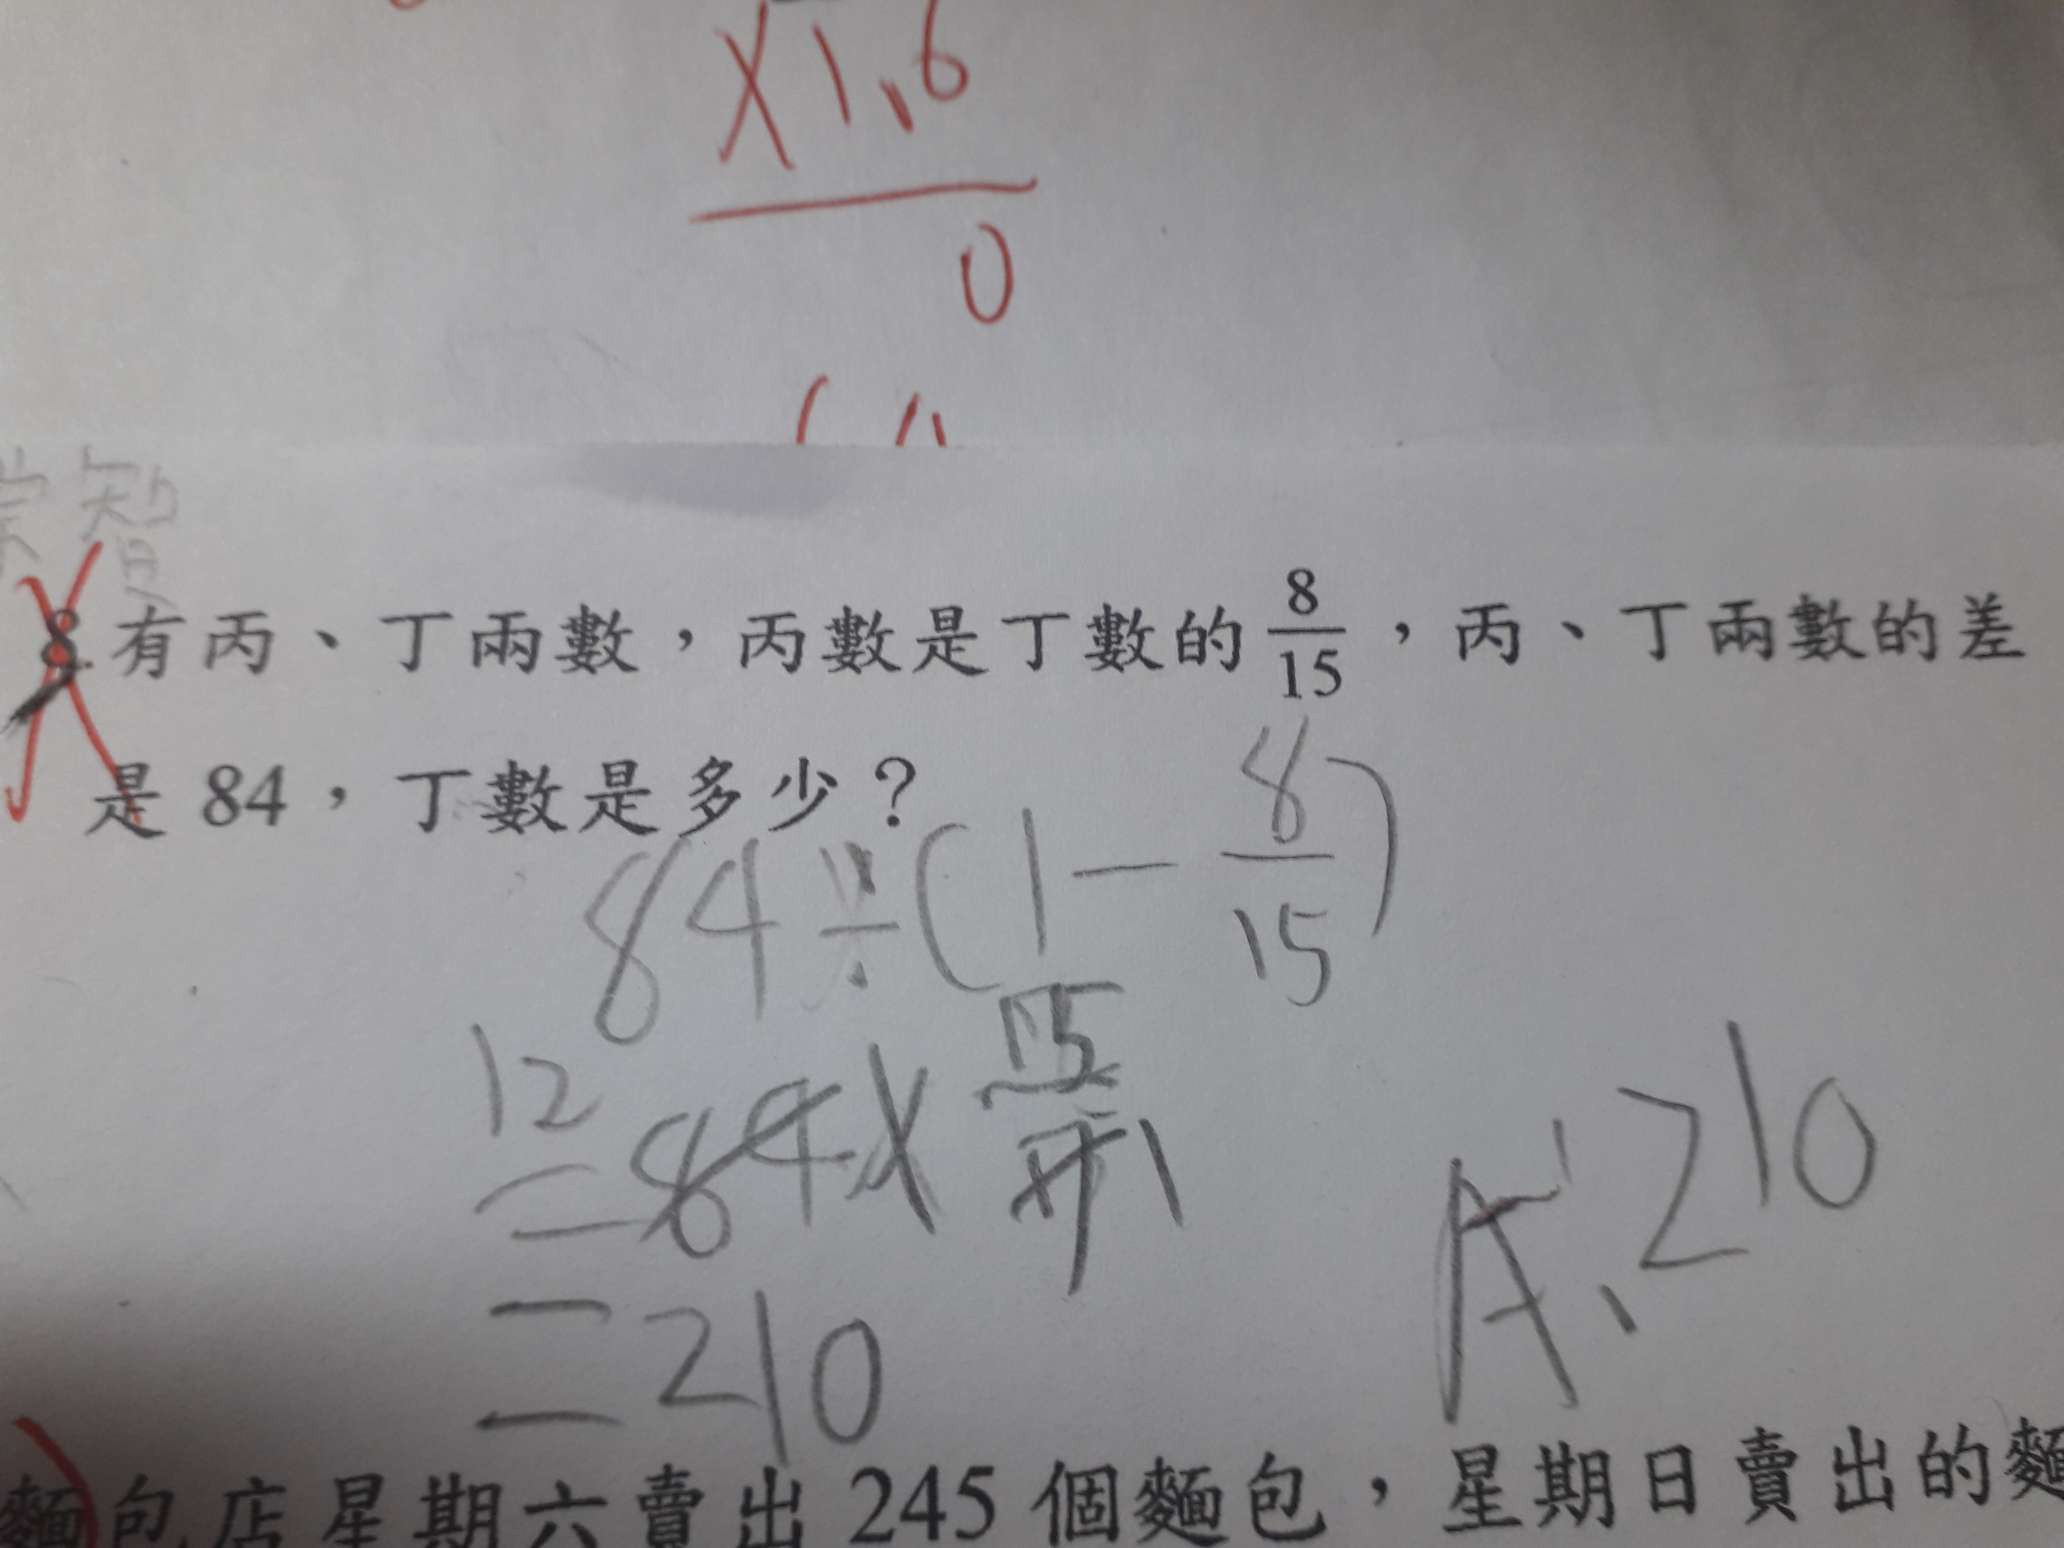 ×1.6
0
智
8. 有丙、丁兩數，丙數是丁數的 8/15，丙、丁兩數的差
是 84，丁數是多少？
84÷(1－8/15)
12
=84×15/7 1
=210
A:210
麵包店星期六賣出 245 個麵包，星期日賣出的麵